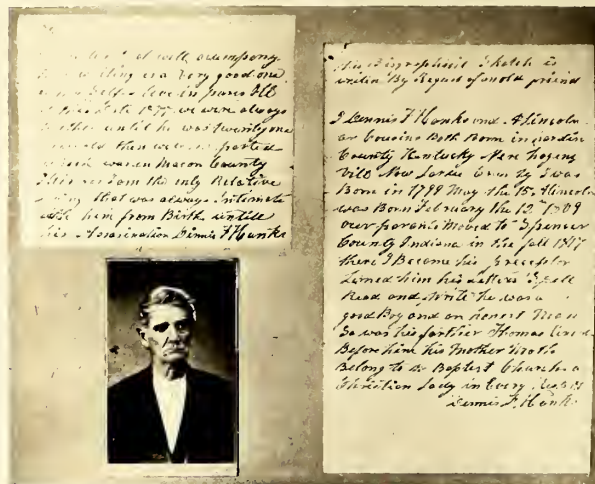 will accompany
writing is a very good one
years old
1877 we were always
together until he was twenty one
years old then we separated
which was in Macon County
I am the only Relative
living that was always Intimate
with him from Birth untill
his Assasination Dennis F Hanks
This Biographical Sketch is
writin By Request of an old friend
I Dennis F Hanks and A Lincoln
ar Cousins Both Born in Hardin
County Kentucky Near Hogins
vill Now Larue County I was
Born in 1799 May the 15 A Lincoln
was Born February the 12 1809
our parants Moved to Spencer
County Indiana in the fall 1817
there I Became his preceptor
Lerned him his letters Spell
Read and write he was a
good Boy and an honest Man
So was his farther Thomas
Before him his Mother Both
Belong to a Baptest Church a
Christian Lady in Every
Dennis F. Hanks